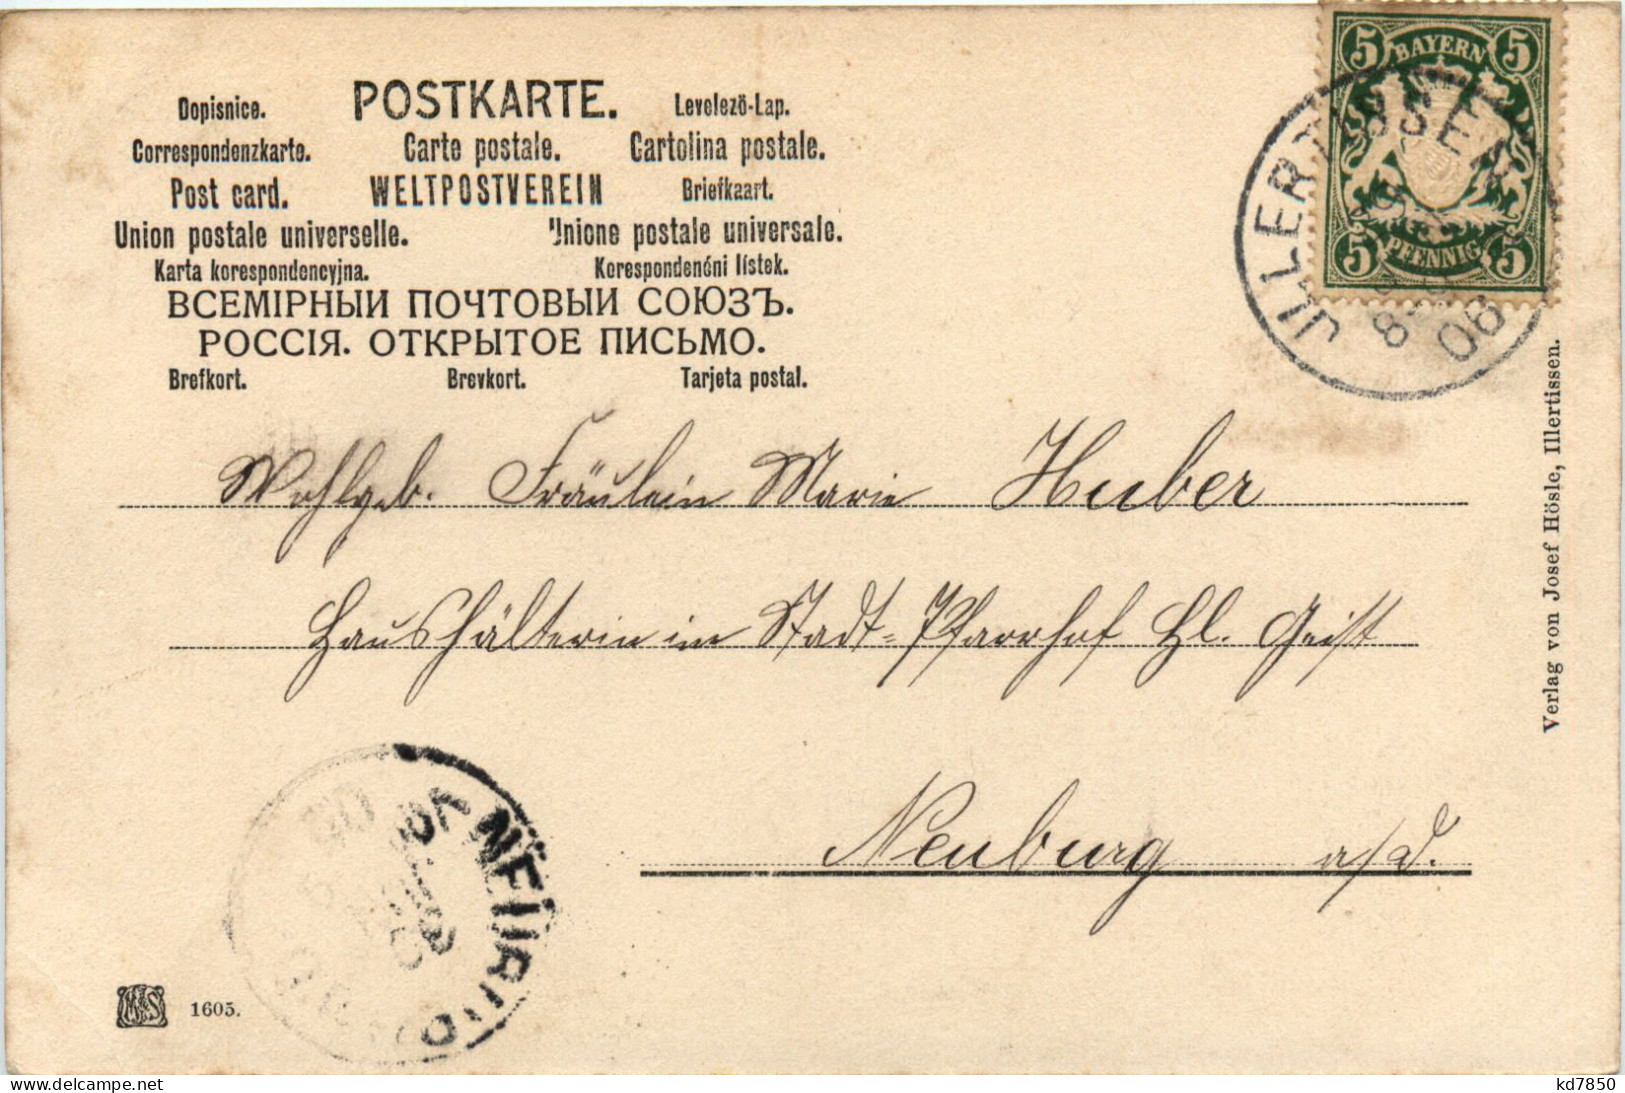 Dopisnice. POSTKARTE. Levelező-Lap.
Correspondenzkarte. Carte postale. Cartolina postale.
Post card. WELTPOSTVEREIN Briefkaart.
Union postale universelle. Unione postale universale.
Karta korespondencyjna. Korespondenéni lístek.
ВСЕМІРНЫИ ПОЧТОВЫИ СОЮЗЪ.
РОССІЯ. ОТКРЫТОЕ ПИСЬМО.
Brefkort. Brevkort. Tarjeta postal.
5 BAYERN 5
5 PFENNIG 5
ILLERTISSEN
8
06
Wohlgeb. Fräulein Marie Huber
Haushälterin im Stadt-Pfarrhof Hl. Geist
Neuburg a/d.
Verlag von Josef Hösle, Illertissen.
NEUBURG
1605.
www.delcampe.net
kd7850